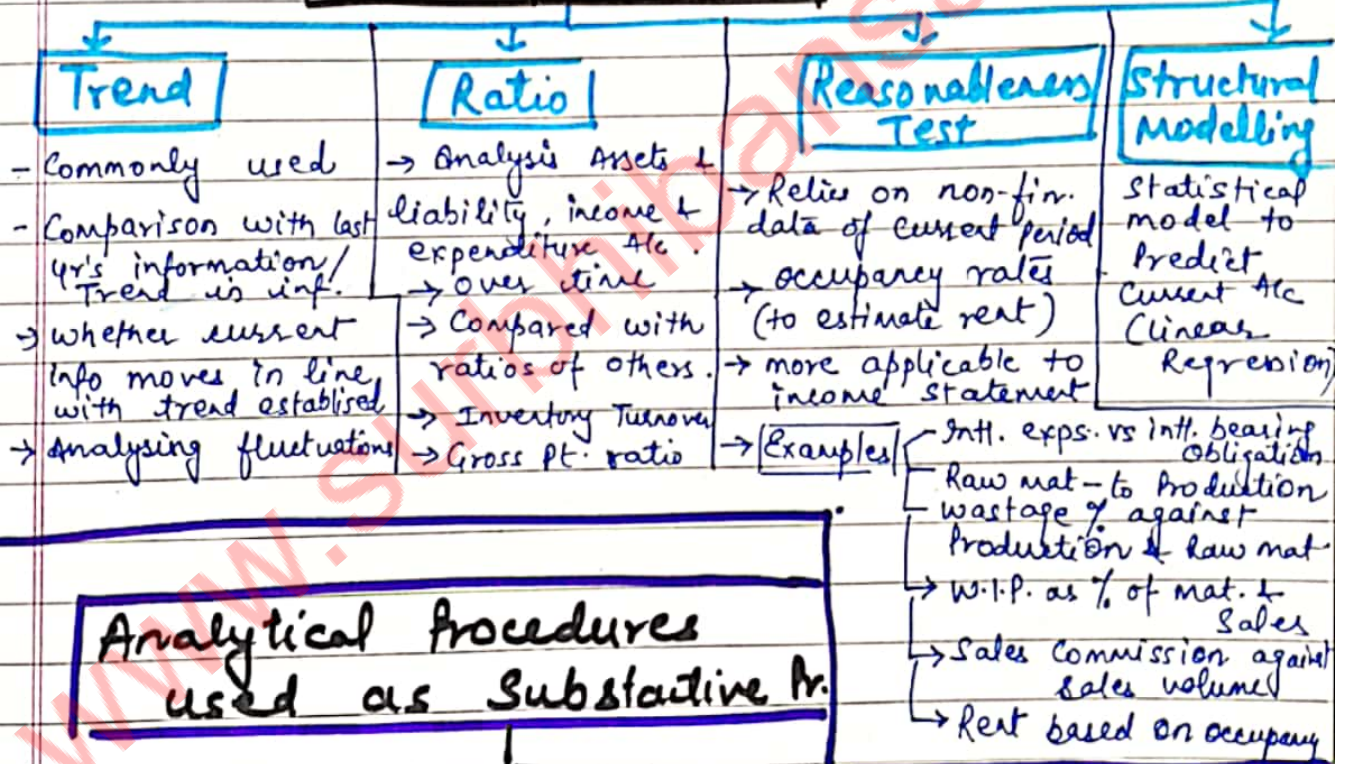 Trend
- Commonly used
- Comparison with last
yr's information/
Trend is inf.
→ whether current
info moves in line
with trend establised
→ Analysing fluctuations
Ratio
→ Analysis Assets &
liability, income &
expenditure A/c.
→ over time
→ Compared with
ratios of others.
→ Inventory Turnover
→ Gross Pt. ratio
Reasonableness
Test
→ Relies on non-fin.
data of current period
→ occupancy rates
(to estimate rent)
→ more applicable to
income statement
→ Examples
Intt. exps. vs intt. bearing
obligation
Raw mat - to Production
wastage % against
Production & Raw mat.
→ W.I.P. as % of mat. &
Sales
→ Sales Commission against
sales volume
→ Rent based on occupancy
Structural
Modelling
Statistical
model to
Predict
Current A/c
(Linear
Regression)
Analytical Procedures
used as Substactive Pr.
www.surbhibans